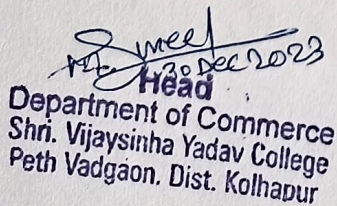 30 DEC 2023
Head
Department of Commerce
Shri. Vijaysinha Yadav College
Peth Vadgaon. Dist. Kolhapur